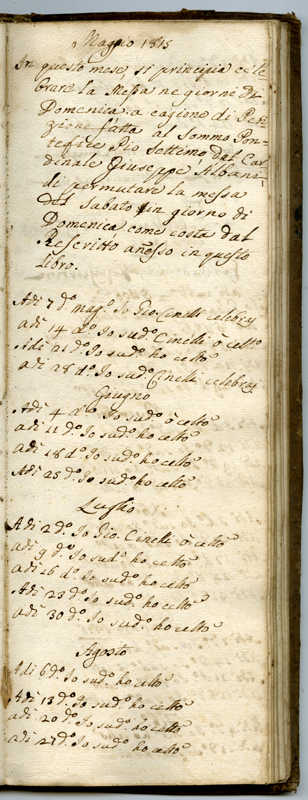 Maggio 1815
In questo mese si principia cele
brare la Messa ne giorni di
Domenica a cagione di Peti
zione fatta al Sommo Pon-
tefice Pio Settimo dal Car
dinale Giuseppe Albani
di permutare la messa
del Sabato in giorno di
Domenica come costa dal
Rescritto annosso in questo
Libro.
Adi 7 dº magº Io Gio Cinelli celebraj
adi 14 dº Io sudº Cinelli ò celtº
Adi 21 dº Io sudº ho celtº
adi 28 dº Io sudº Cinelli celebraj
Giugno
Adi 4 dº Io sudº ò celtº
adi 11 dº Io sudº ho celtº
adi 18 dº Io sudº ho celtº
Adi 25 dº Io sudº ho celtº
Luglio
Adi 2 dº Io Gio. Cinelli ò celtº
adi 9 dº Io sudº ho celtº
adi 16 dº Io sudº ho celtº
Adi 23 dº Io sudº ho celtº
adi 30 dº Io sudº ho celtº
Agosto
Adi 6 dº Io sudº ho celtº
Adi 13 dº Io sudº ho celtº
adi 20 dº Io sudº ho celtº
adi 27 dº Io sudº ho celtº